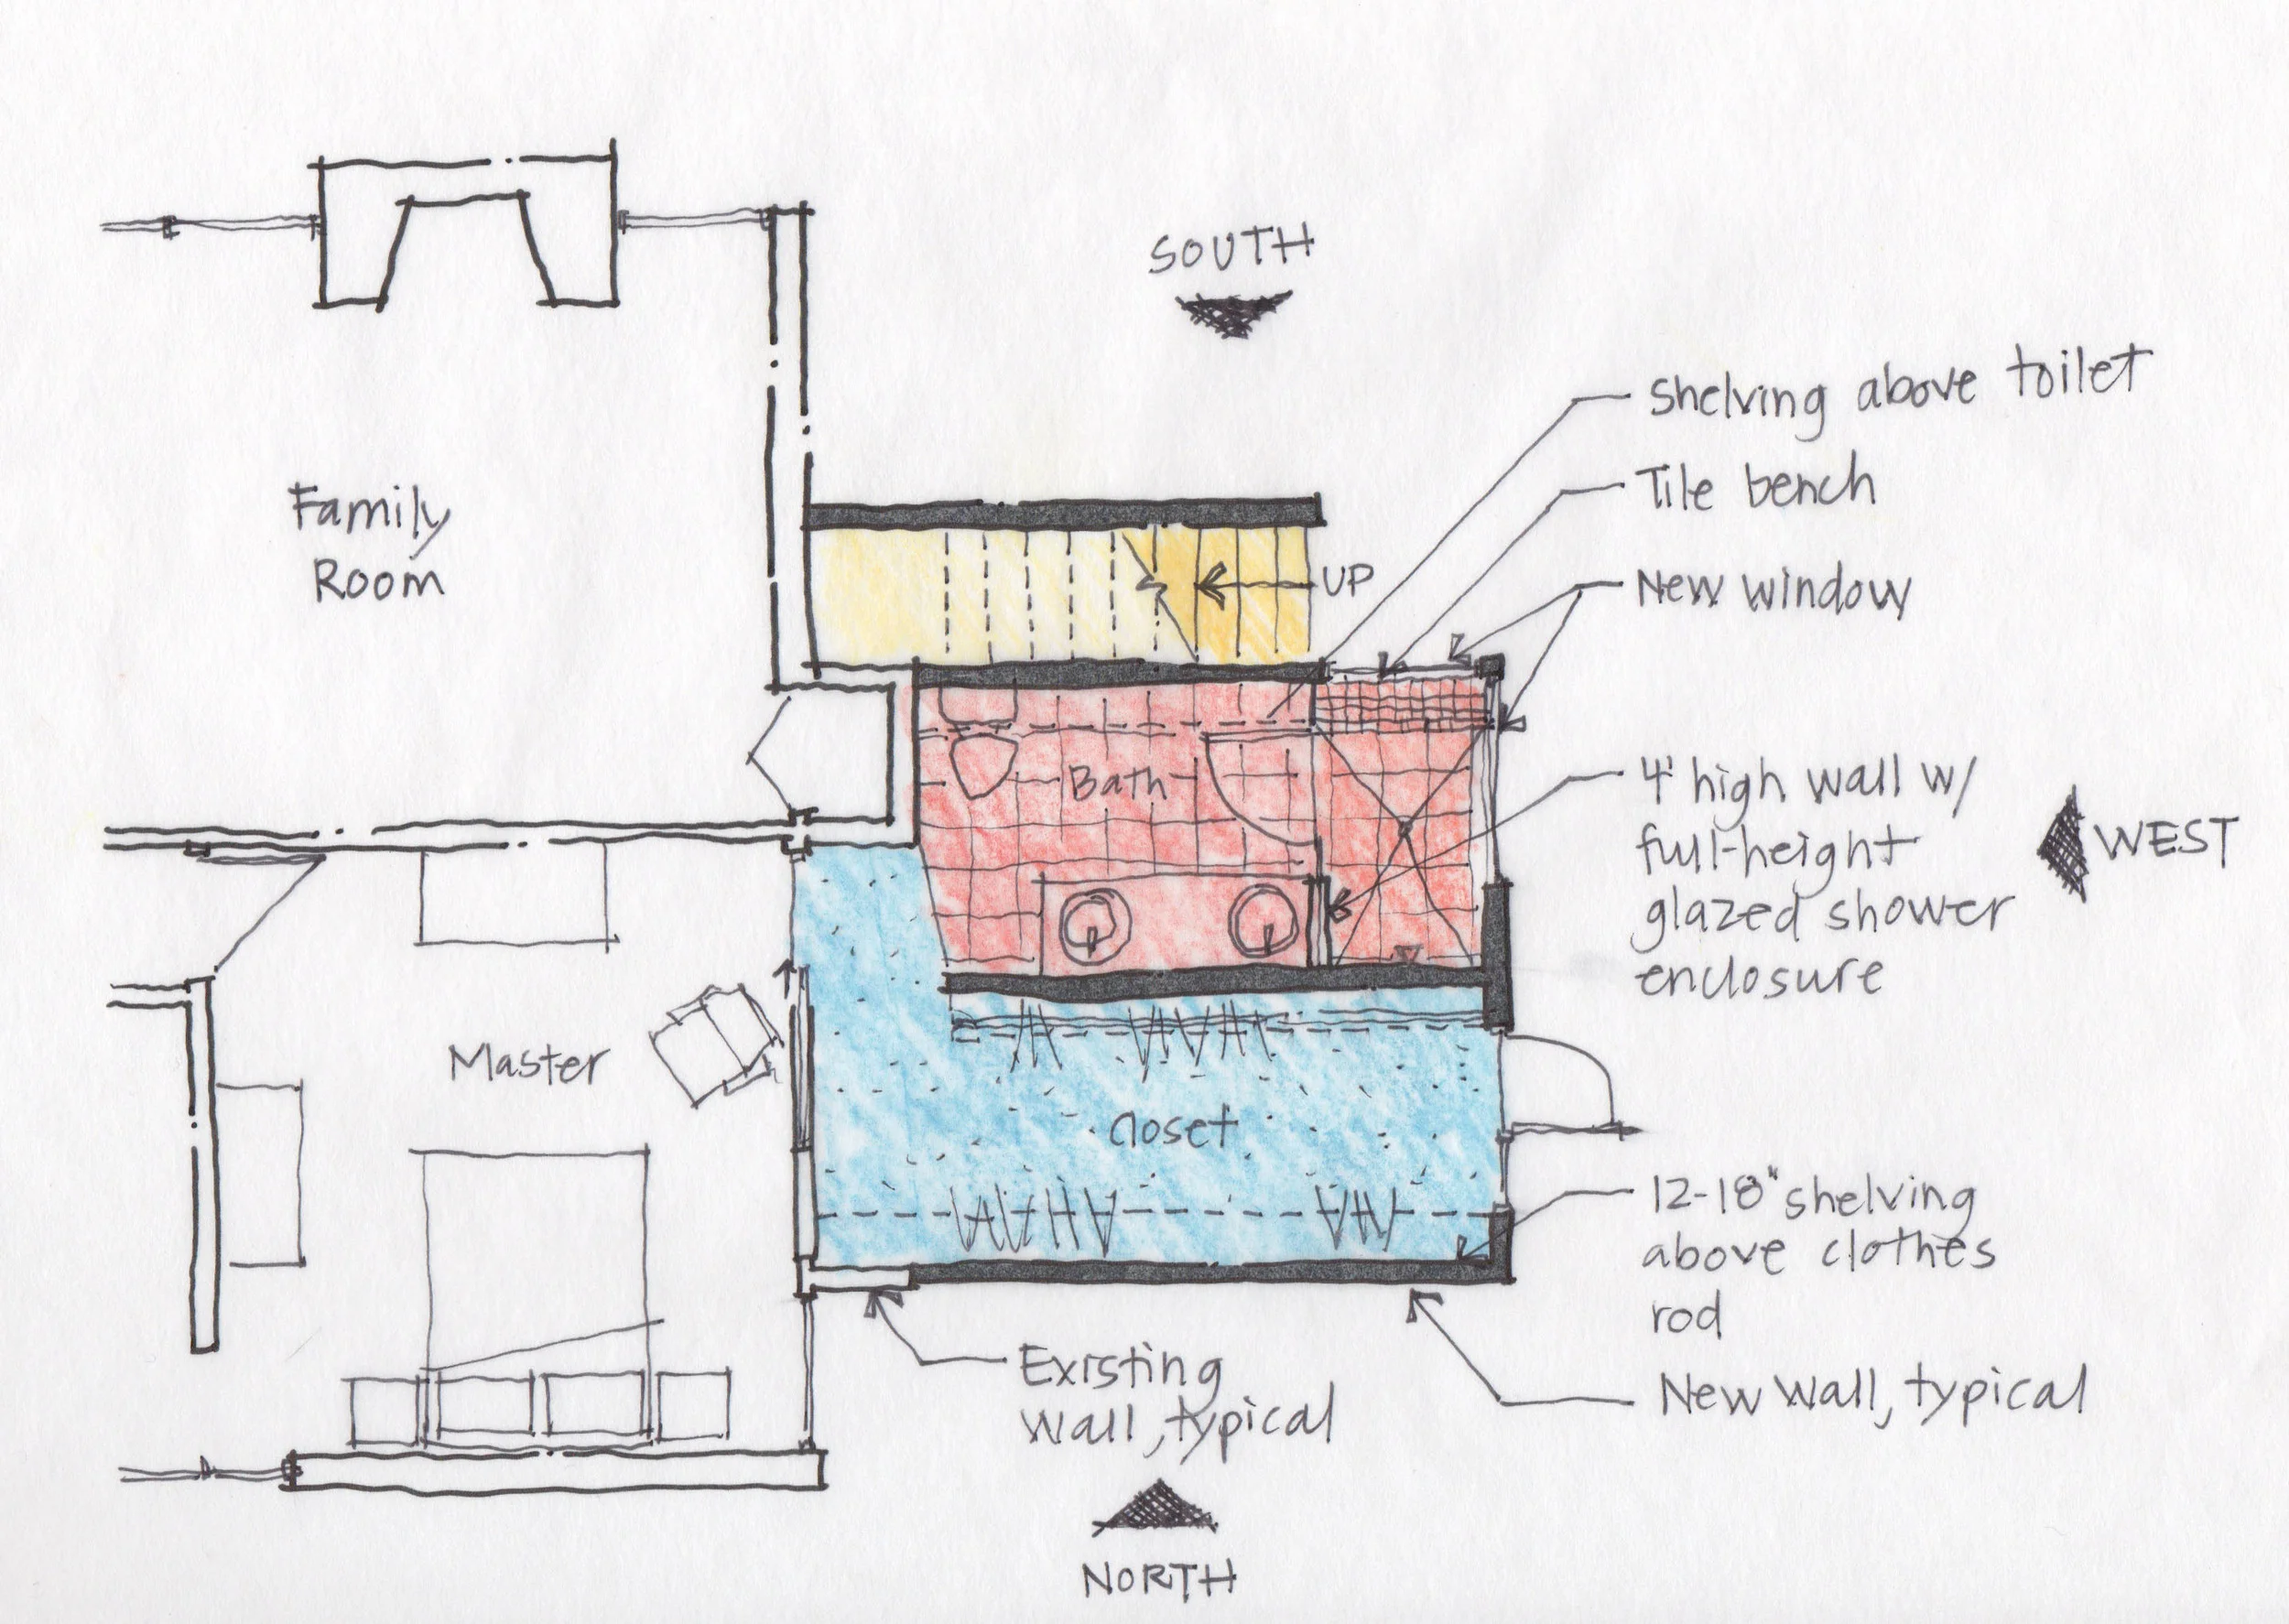 SOUTH
Shelving above toilet
Tile bench
New window
Family
Room
UP
Bath
4' high wall w/
full-height
glazed shower
enclosure
WEST
Master
Closet
12-18" shelving
above clothes
rod
Existing
Wall, typical
New Wall, typical
NORTH